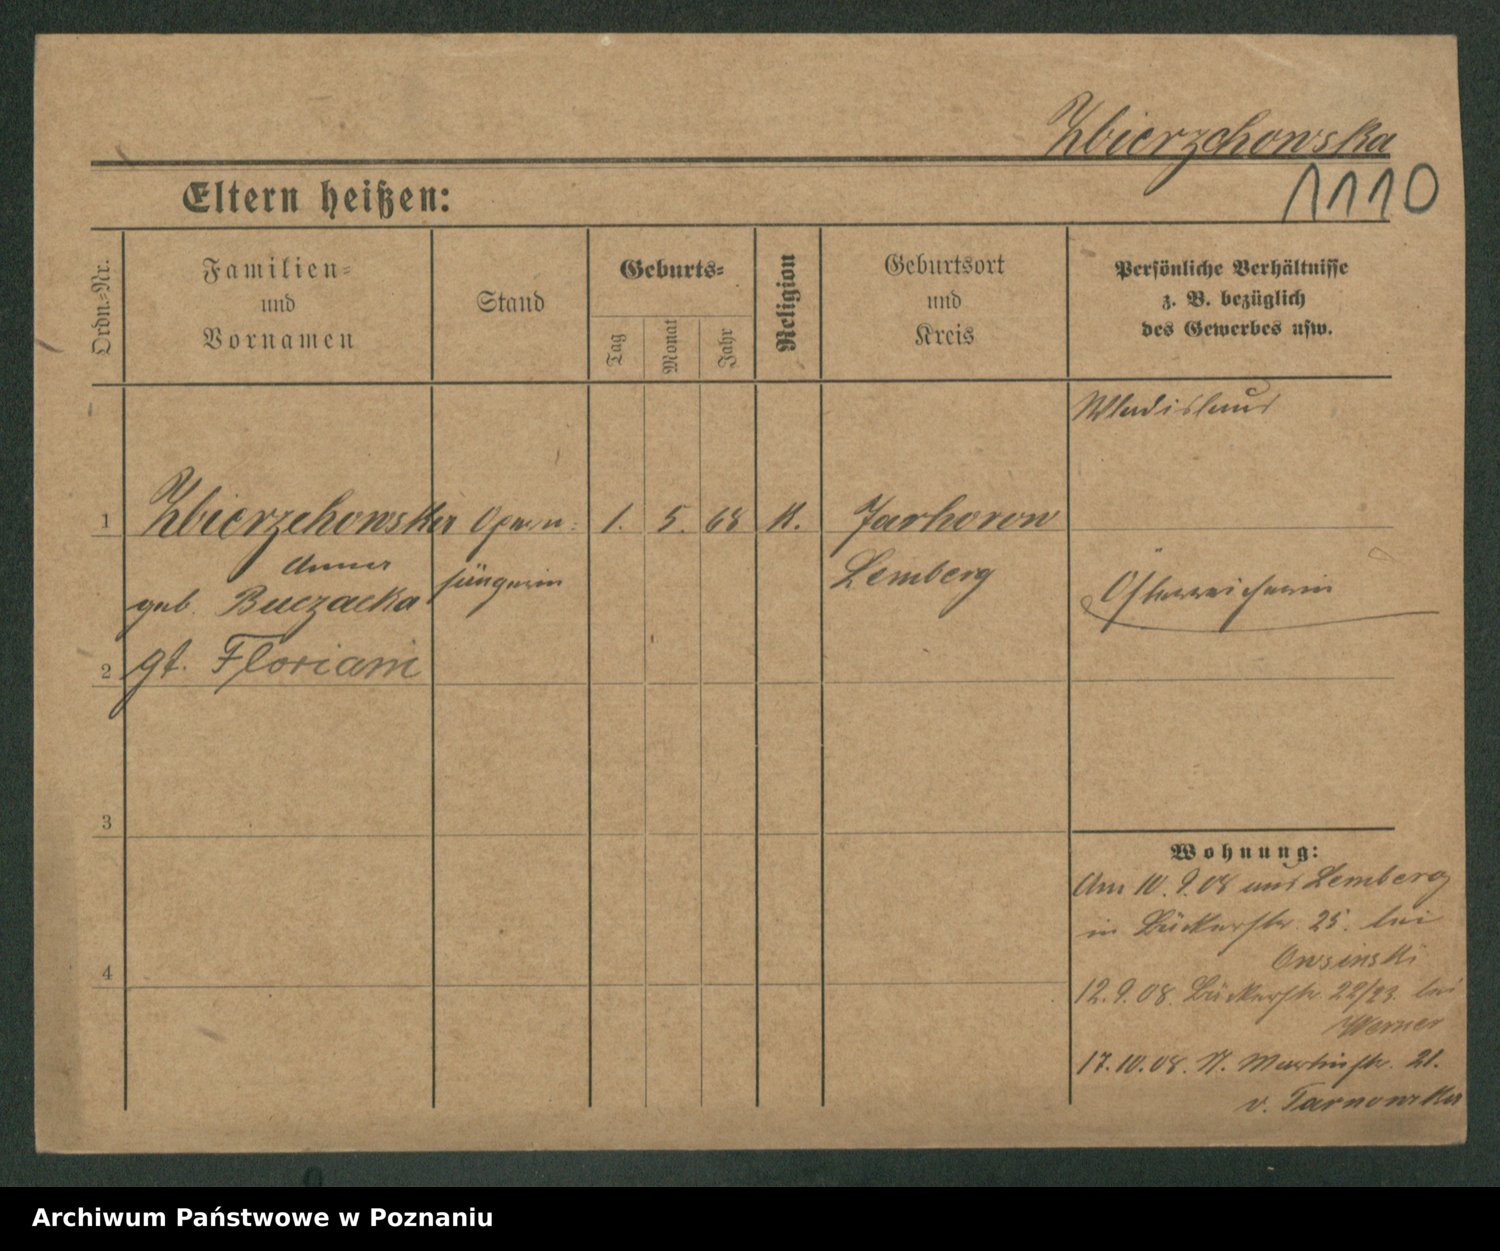 Zbierzchowska
1110
Eltern heißen:
Ordn.-Nr.
Familien-
und
Vornamen
Stand
Geburts-
Tag
Monat
Jahr
Religion
Geburtsort
und
Kreis
Persönliche Verhältnisse
z. B. bezüglich
des Gewerbes usw.
Wladislaus
1 Zbierzchowska Opern- 1. 5. 68 K. Jarhorow
Anna
geb. Buczacka sängerin Lemberg
Österreicherin
2 gt. Floriani
3
Wohnung:
Am 10.9.08 aus Lemberg
in Bäckerstr. 25. bei
Owsinski
4
12.9.08. Bäckerstr. 22/23 bei
Werner
17.10.08. St. Martinstr. 21.
v. Tarnowska
Archiwum Państwowe w Poznaniu